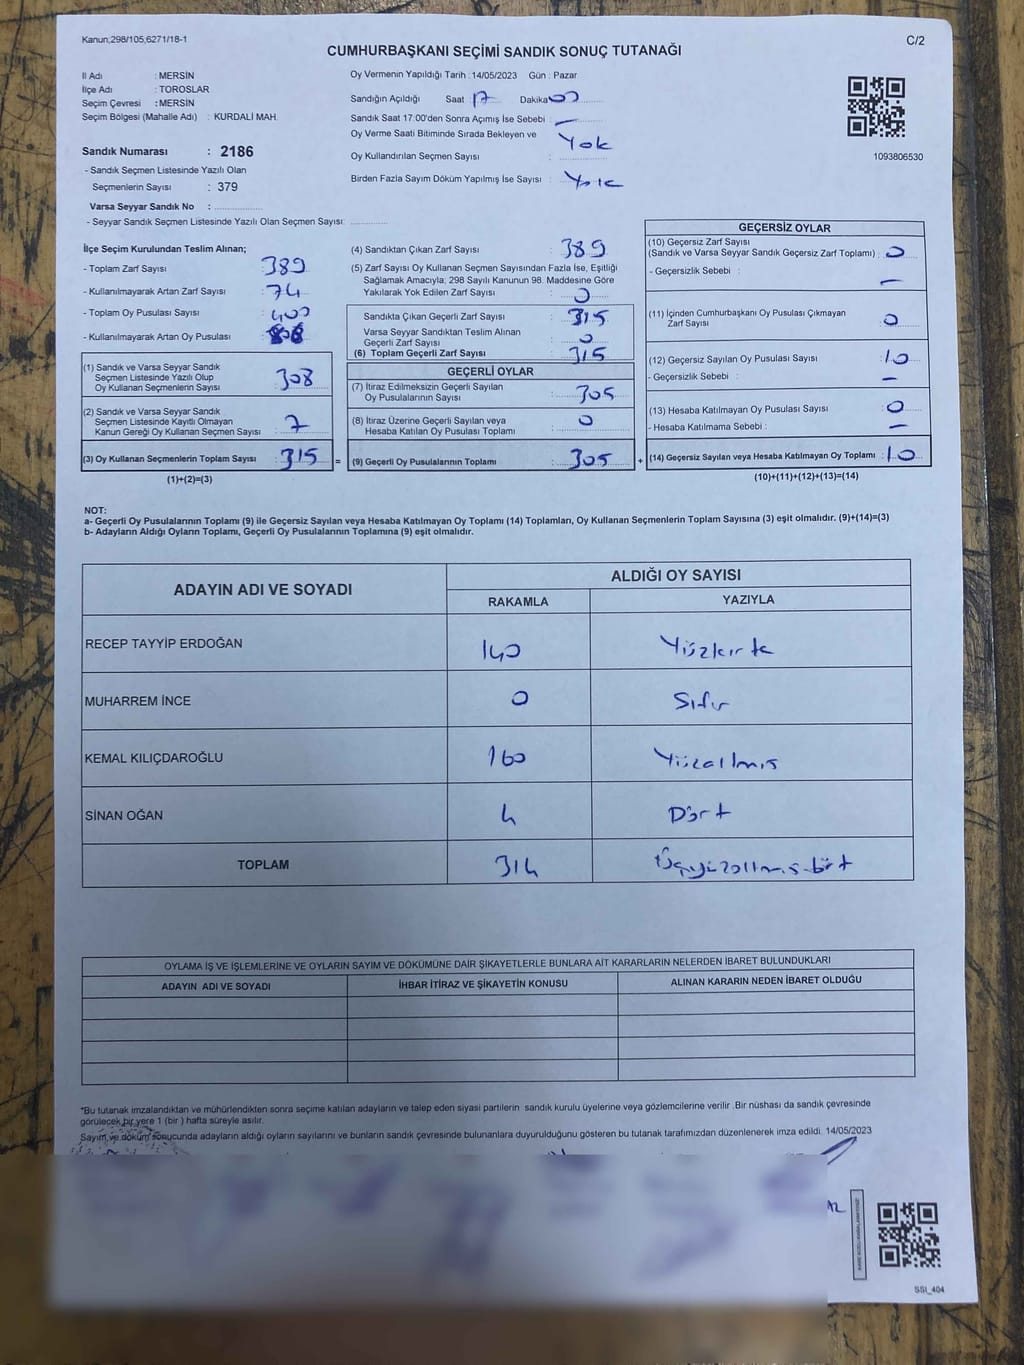 Kanun;298/105,6271/18-1
C/2
CUMHURBAŞKANI SEÇİMİ SANDIK SONUÇ TUTANAĞI
İl Adı : MERSİN
İlçe Adı : TOROSLAR
Seçim Çevresi : MERSİN
Seçim Bölgesi (Mahalle Adı) : KURDALİ MAH.
Sandık Numarası : 2186
- Sandık Seçmen Listesinde Yazılı Olan
Seçmenlerin Sayısı : 379
Varsa Seyyar Sandık No :
- Seyyar Sandık Seçmen Listesinde Yazılı Olan Seçmen Sayısı:
Oy Vermenin Yapıldığı Tarih : 14/05/2023 Gün : Pazar
Sandığın Açıldığı Saat 17 Dakika 00
Sandık Saat 17:00'den Sonra Açımış İse Sebebi : —
Oy Verme Saati Bitiminde Sırada Bekleyen ve
Oy Kullandırılan Seçmen Sayısı : Yok
Birden Fazla Sayım Döküm Yapılmış İse Sayısı : Yok
1093806530
İlçe Seçim Kurulundan Teslim Alınan;
- Toplam Zarf Sayısı : 389
- Kullanılmayarak Artan Zarf Sayısı : 74
- Toplam Oy Pusulası Sayısı : 400
- Kullanılmayarak Artan Oy Pusulası :
(1) Sandık ve Varsa Seyyar Sandık
Seçmen Listesinde Yazılı Olup
Oy Kullanan Seçmenlerin Sayısı : 308
(2) Sandık ve Varsa Seyyar Sandık
Seçmen Listesinde Kayıtlı Olmayan
Kanun Gereği Oy Kullanan Seçmen Sayısı : 7
(3) Oy Kullanan Seçmenlerin Toplam Sayısı : 315
(1)+(2)=(3)
=
(4) Sandıktan Çıkan Zarf Sayısı : 389
(5) Zarf Sayısı Oy Kullanan Seçmen Sayısından Fazla İse, Eşitliği
Sağlamak Amacıyla; 298 Sayılı Kanunun 98. Maddesine Göre
Yakılarak Yok Edilen Zarf Sayısı : 0
Sandıkta Çıkan Geçerli Zarf Sayısı : 315
Varsa Seyyar Sandıktan Teslim Alınan
Geçerli Zarf Sayısı : 0
(6) Toplam Geçerli Zarf Sayısı : 315
GEÇERLİ OYLAR
(7) İtiraz Edilmeksizin Geçerli Sayılan
Oy Pusulalarının Sayısı : 305
(8) İtiraz Üzerine Geçerli Sayılan veya
Hesaba Katılan Oy Pusulası Toplamı : 0
(9) Geçerli Oy Pusulalarının Toplamı : 305
+
GEÇERSİZ OYLAR
(10) Geçersiz Zarf Sayısı
(Sandık ve Varsa Seyyar Sandık Geçersiz Zarf Toplamı) : 0
- Geçersizlik Sebebi : —
(11) İçinden Cumhurbaşkanı Oy Pusulası Çıkmayan
Zarf Sayısı : 0
(12) Geçersiz Sayılan Oy Pusulası Sayısı : 10
- Geçersizlik Sebebi : —
(13) Hesaba Katılmayan Oy Pusulası Sayısı : 0
- Hesaba Katılmama Sebebi : —
(14) Geçersiz Sayılan veya Hesaba Katılmayan Oy Toplamı : 10
(10)+(11)+(12)+(13)=(14)
NOT:
a- Geçerli Oy Pusulalarının Toplamı (9) ile Geçersiz Sayılan veya Hesaba Katılmayan Oy Toplamı (14) Toplamları, Oy Kullanan Seçmenlerin Toplam Sayısına (3) eşit olmalıdır. (9)+(14)=(3)
b- Adayların Aldığı Oyların Toplamı, Geçerli Oy Pusulalarının Toplamına (9) eşit olmalıdır.
ADAYIN ADI VE SOYADI
ALDIĞI OY SAYISI
RAKAMLA YAZIYLA
RECEP TAYYİP ERDOĞAN 140 Yüzkırk
MUHARREM İNCE 0 Sıfır
KEMAL KILIÇDAROĞLU 160 Yüzaltmış
SİNAN OĞAN 4 Dört
TOPLAM 314
OYLAMA İŞ VE İŞLEMLERİNE VE OYLARIN SAYIM VE DÖKÜMÜNE DAİR ŞİKAYETLERLE BUNLARA AİT KARARLARIN NELERDEN İBARET BULUNDUKLARI
ADAYIN ADI VE SOYADI İHBAR İTİRAZ VE ŞİKAYETİN KONUSU ALINAN KARARIN NEDEN İBARET OLDUĞU
*Bu tutanak imzalandıktan ve mühürlendikten sonra seçime katılan adayların ve talep eden siyasi partilerin sandık kurulu üyelerine veya gözlemcilerine verilir .Bir nüshası da sandık çevresinde
görülecek bir yere 1 (bir ) hafta süreyle asılır.
Sayım ve döküm sonucunda adayların aldığı oyların sayılarını ve bunların sandık çevresinde bulunanlara duyurulduğunu gösteren bu tutanak tarafımızdan düzenlenerek imza edildi. 14/05/2023
SSI_404